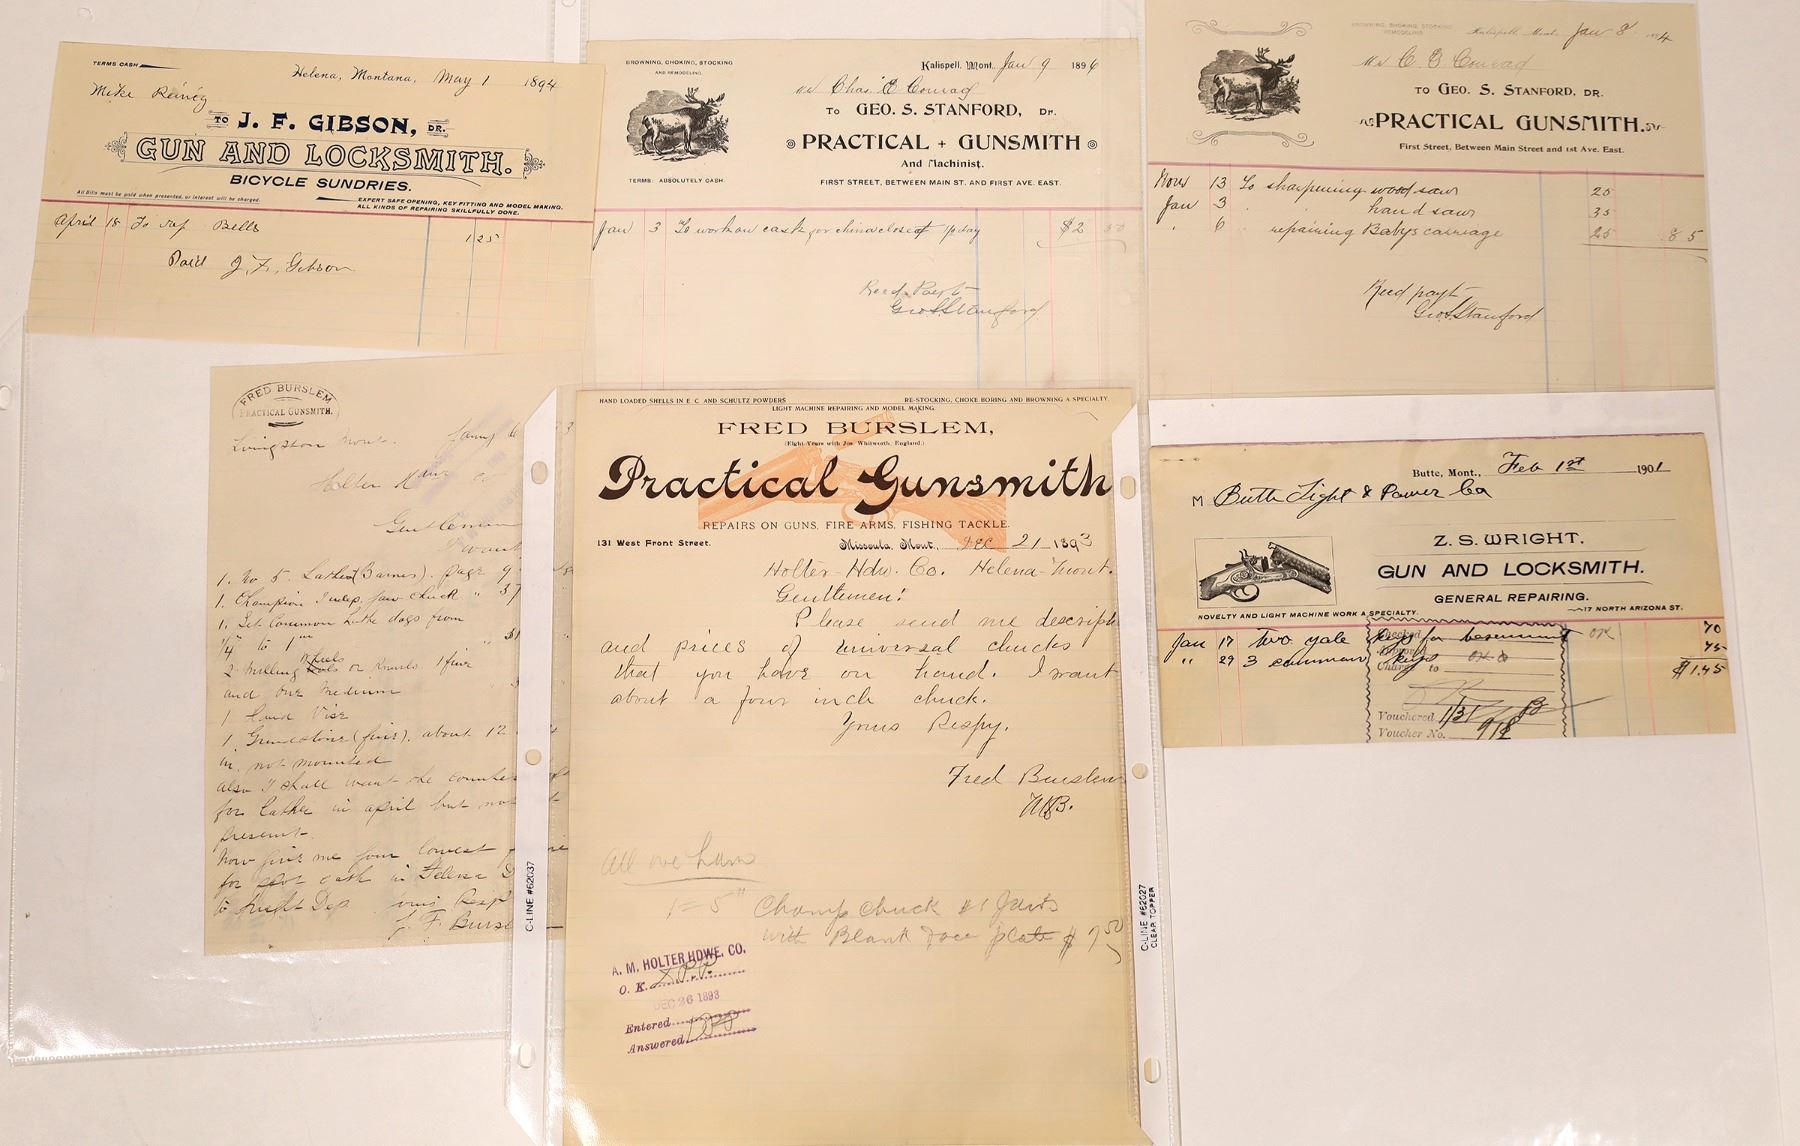 TERMS CASH
Helena, Montana, May 1 1894
Mike Rainey
TO J. F. GIBSON, DR.
GUN AND LOCKSMITH.
BICYCLE SUNDRIES.
All Bills must be paid when presented, or interest will be charged.
EXPERT SAFE OPENING, KEY FITTING AND MODEL MAKING.
ALL KINDS OF REPAIRING SKILLFULLY DONE.
April 18 To Bells 1 25
Paid J. F. Gibson
BROWNING, CHOKING, STOCKING
AND REMODELING.
Kalispell, Mont. Jan 9 1896
Mr Chas E Conrad
TO GEO. S. STANFORD, Dr.
PRACTICAL + GUNSMITH
And Machinist.
TERMS: ABSOLUTELY CASH.
FIRST STREET, BETWEEN MAIN ST. AND FIRST AVE. EAST.
Jan 3 To work on cask for china closet 1/2 day $2 50
Recd Payt
Geo S Stanford
BROWNING, CHOKING, STOCKING
REMODELING
Kalispell, Mont. Jan 8 4
Mr C. E. Conrad
TO GEO. S. STANFORD, DR.
PRACTICAL GUNSMITH.
First Street, Between Main Street and 1st Ave. East.
Nov 13 To sharpening wood saw 25
Jan 3 " hand saw 35
" 6 " repairing Babys carriage 25 85
Recd payt
Geo S. Stanford
FRED BURSLEM
PRACTICAL GUNSMITH.
Livingston Mont. 3
Holter Co
Gentlemen
I want
1. No 5. Lathe (Barnes). page 9
1. Champion Indep. jaw chuck " 37
1. Set Common Lathe dogs from
1/4" to 1"
2 Milling Wheels or Knurls 1 fine
and one Medium
1 hand Vise
1 Grindstone (fine). about 12
in. not mounted
also I shall want the counter
for Lathe in april but not
present.
Now give me your lowest
for spot cash in Helena
to Dep
yours Resp
J. F. Bursl
HAND LOADED SHELLS IN E. C. AND SCHULTZ POWDERS
RE-STOCKING, CHOKE BORING AND BROWNING A SPECIALTY.
LIGHT MACHINE REPAIRING AND MODEL MAKING.
FRED BURSLEM,
(Eight Years with Jos. Whitworth, England.)
Practical Gunsmith
REPAIRS ON GUNS, FIRE ARMS, FISHING TACKLE.
131 West Front Street.
Missoula, Mont., DEC 21 1893
Holter Hdw. Co. Helena Mont.
Gentlemen!
Please send me descripti
and prices of universal chucks
that you have on hand. I want
about a four inch chuck.
Yours Respy.
Fred Burslem
All we have
1 = 5" Champ Chuck #1 Jaws
with Blank Face plate $7.50
A. M. HOLTER HDWE. CO.
O. K.
DEC 26 1893
Entered
Answered
Butte, Mont., Feb 1st 1901
M Butte Light & Power Co
Z. S. WRIGHT.
GUN AND LOCKSMITH.
GENERAL REPAIRING.
NOVELTY AND LIGHT MACHINE WORK A SPECIALTY.
17 NORTH ARIZONA ST.
Jan 17 two yale keys for basement OK 70
" 29 3 common keys 75
$1.45
Checked
Charge to
Vouchered 1/31
Voucher No. 918
C-LINE #62037
C-LINE #62027
CLEAR TOPPER